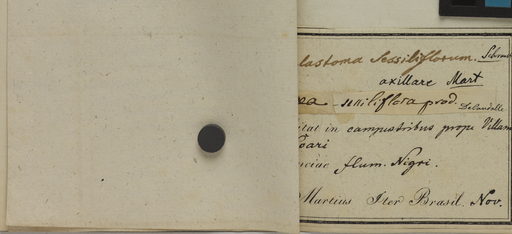 lastoma sessiliflorum. Schrank
axillare Mart
sessiliflora prod. DeCandolle
itat in campestribus prope Villam
nciae flum. Nigri.
Martius Iter Brasil. Nov.